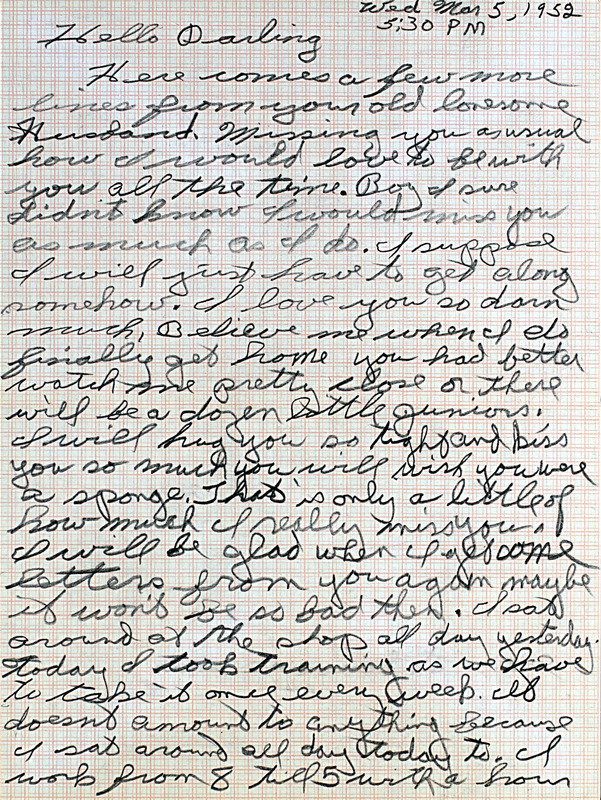 Wed Mar 5, 1952
5:30 PM
Hello Darling
Here comes a few more
lines from your old lonesome
Husband. Missing you as usual
how I would love to be with
you all the time. Boy I sure
didn't know I would miss you
as much as I do. I suppose
I will just have to get along
somehow. I love you so darn
much, Believe me when I do
finally get home you had better
watch me pretty close or there
will be a dozen little juniors.
I will hug you so tight and kiss
you so much you will wish you were
a sponge. That is only a little of
how much I really miss you.
I will be glad when I get some
letters from you again maybe
it won't be so bad then. I sat
around at the shop all day yesterday.
Today I took training as we have
to take it once every week. It
doesn't amount to anything because
I sat around all day today to. I
work from 8 till 5 with a hour